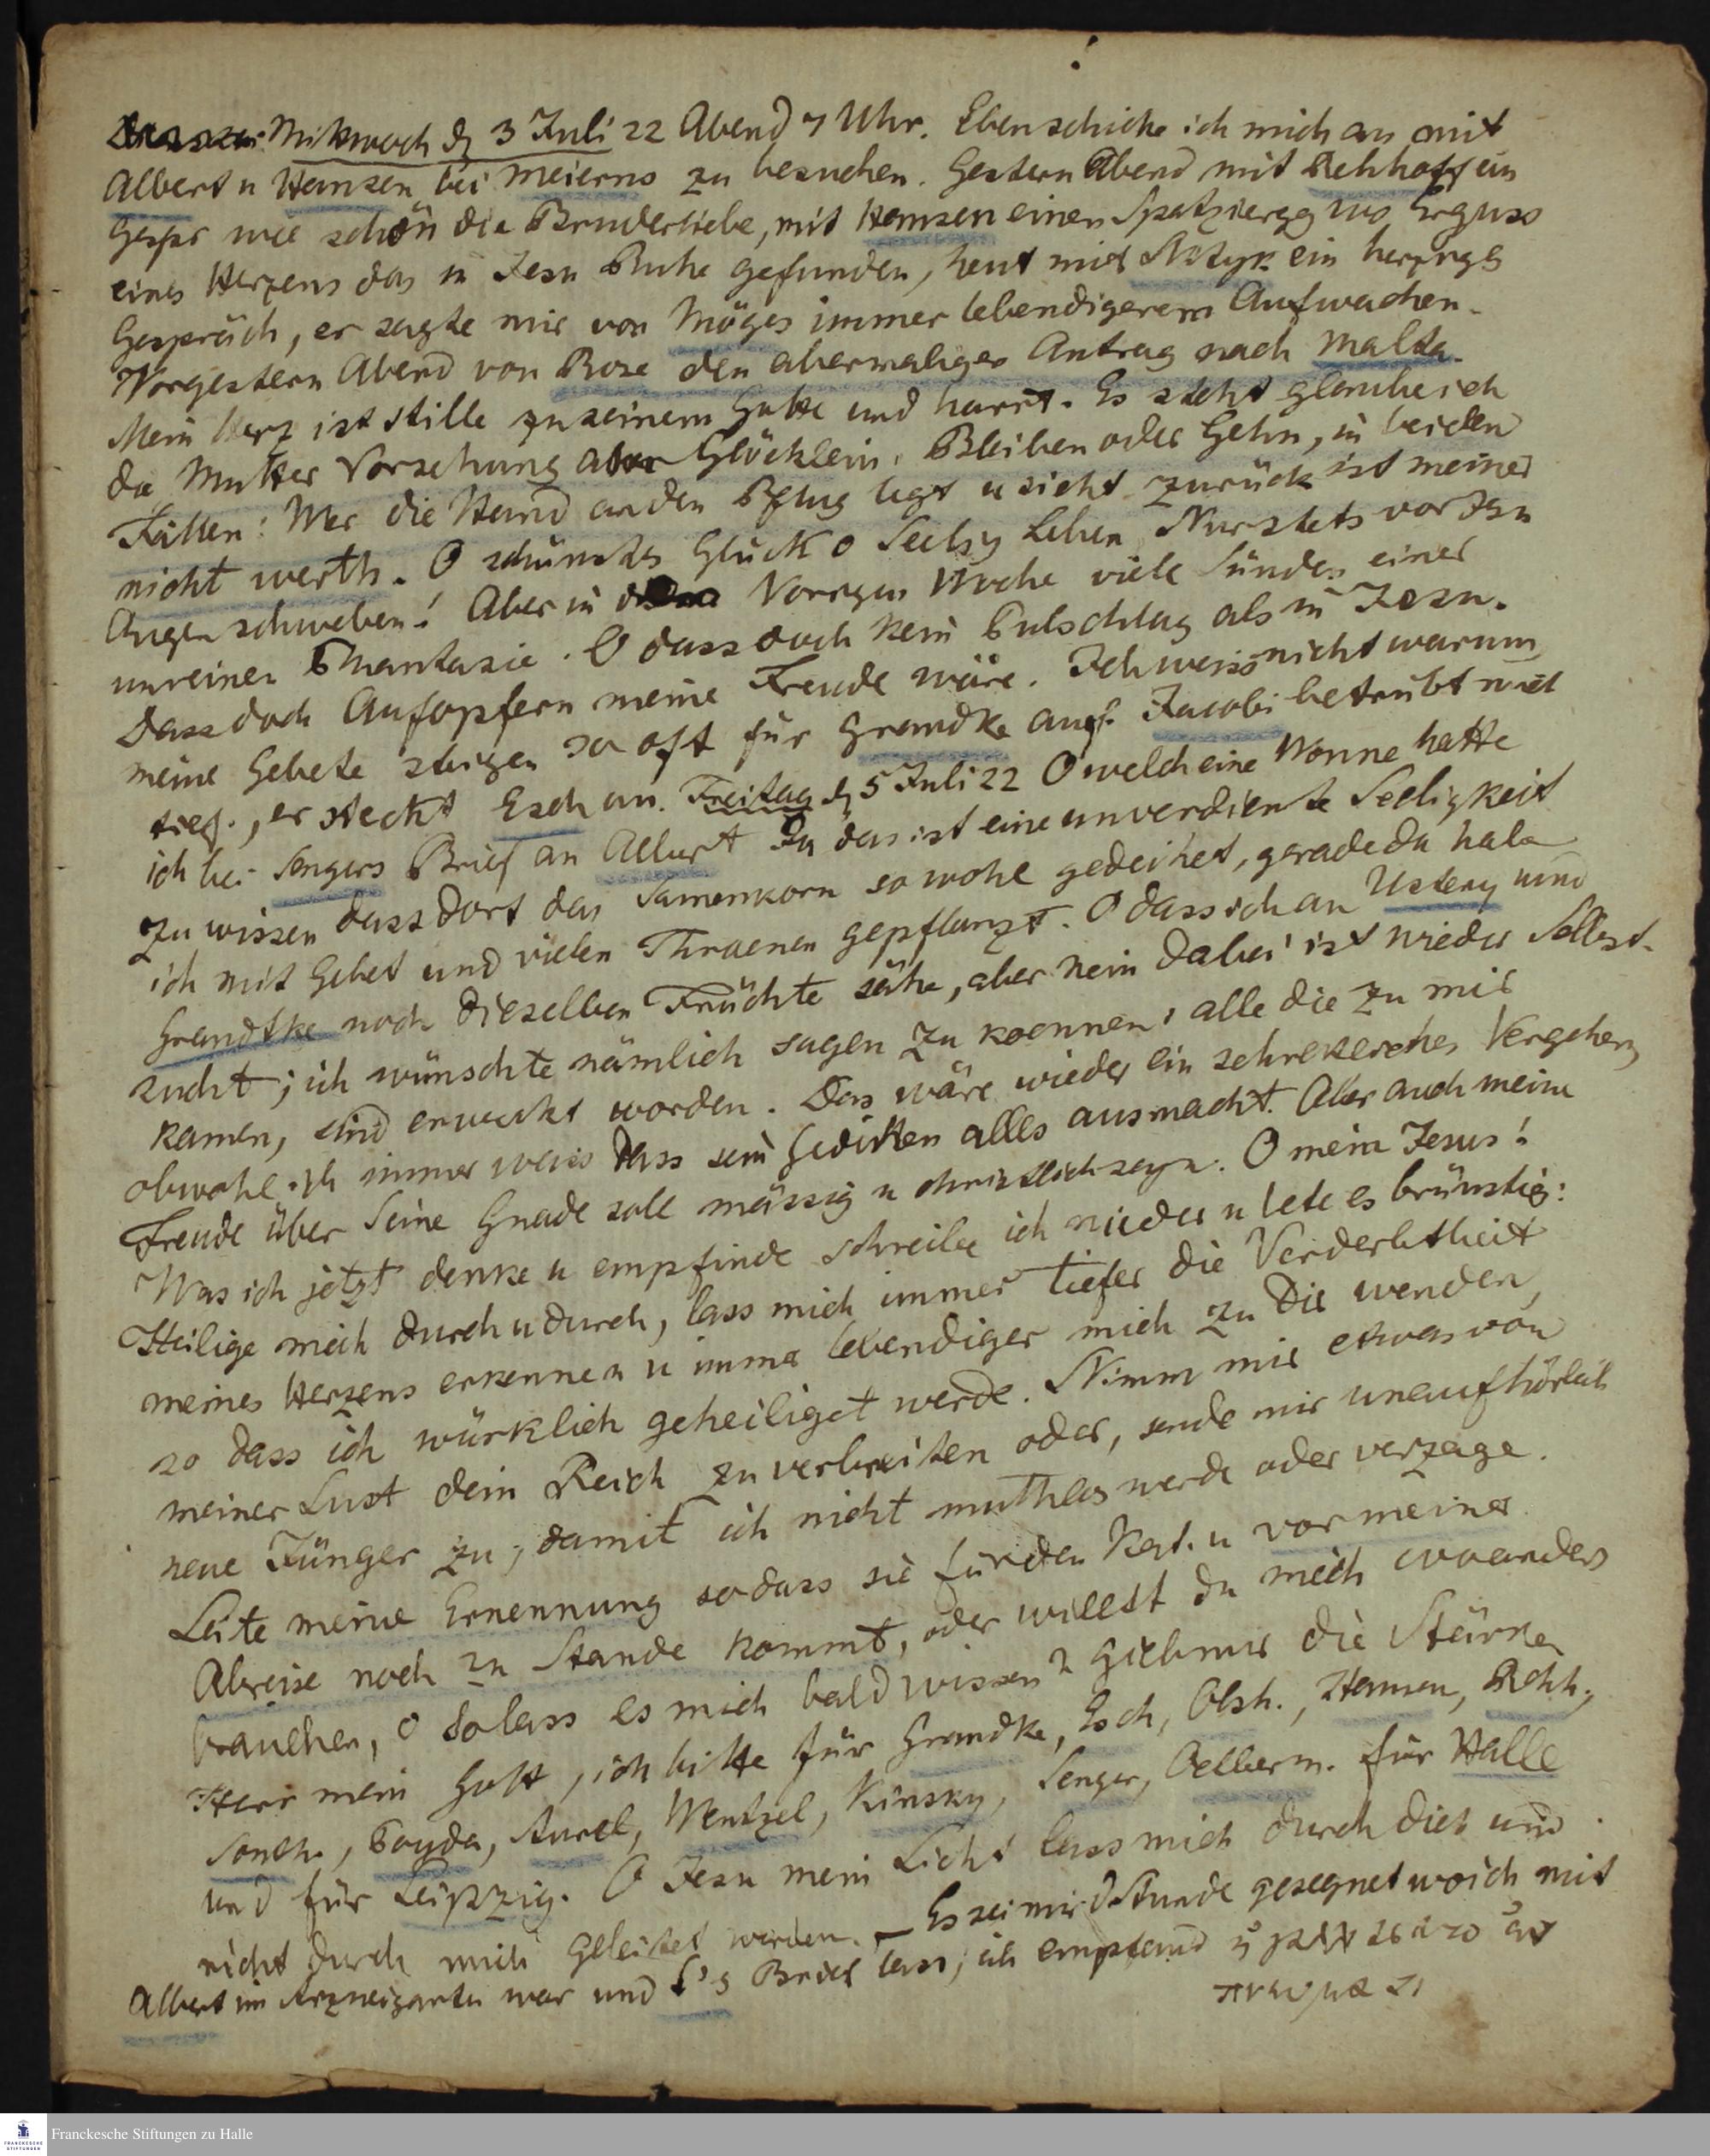 Mittwoch d 3 Juli 22 Abend 7 Uhr. Eben schicke ich mich an mit
Albert u Hansen bei Meierns zu besuchen. Gestern Abend mit Rehhoff ein
Gespr wie schön die Bruderliebe, mit Hansen einen Spatziergg wo Erguss
eines Herzens das in Jesu Ruhe gefunden, heut mit ein herziges
Gespräch, er sagte mir von Möges immer lebendigerem Aufwachen.
Vorgestern Abend von Rose den abermaligen Antrag nach Malta.
Mein Herz ist stille zu seinem Gotte und harrt. Es zieht glaube ich
die Mutter Vorsehung Glöcklein. Bleiben oder Gehn, in beiden
Fällen: Wer die Hand an den Pflug legt u sieht zurück ist meiner
nicht werth. O schönstes Glück o Seelig Leben Nur stets vor Jesu
Augen schweben! Aber in Vorigen Woche viele Sünden einer
unreinen Phantasie. O dass doch kein Pulschlag als in Jesu.
Dass doch Aufopfern meine Freude wäre. Ich weiss nicht warum
meine Gebete steigen so oft für Grandke auf. Jacobi betrübt mich
tief., er steckt Esch an. Freitag d 5 Juli 22 O welch eine Wonne hatte
ich bei Sengers Brief an Albert Ja das ist eine unverdiente Seeligkeit
zu wissen dass dort das Samenkorn so wohl gedeihet, gerade da habe
ich mit Gebet und vielen Thraenen gepflanzt. O dass ich an Ustery und
Grandtke noch dieselben Früchte sähe, aber nein dabei ist wieder Selbst-
sucht; ich wünschte nämlich sagen zu koennen: alle die zu mir
kamen, sind erweckt worden. Das wäre wieder ein schrekliches Vergehen,
obwohl ich immer weiss dass sein Gedeihen alles ausmacht. Aber auch meine
Freude über Seine Gnade soll mässig u christlich seyn. O mein Jesus!
Was ich jetzt denke u empfinde schreibe ich nieder u bete es brünstig:
Heilige mich durch u durch, lass mich immer tiefer die Verderbtheit
meines Herzens erkennen u immer lebendiger mich zu Dir wenden,
so dass ich würklich geheiliget werde. Nimm mir etwas von
meiner Lust dein Reich zu verbreiten oder, sende mir unaufhörlich
neue Jünger zu, damit ich nicht muthlos werde oder verzage.
Leite meine Ernennung sodass sie für den Kat. u vor meiner
Abreise noch zu Stande kommt, oder willst du mich woanders
brauchen, o so lass es mich bald wissen u gieb mir die Stärke
Herr mein Gott, ich bitte für Grandke, Esch, Olsh., Hansen, Rehh.,
Sonth., Poyda, Aurel, Wentzel, Kinsky, Senger, Oelberm. für Halle
und für Leipzig. O Jesu mein Licht lass mich durch dich und
nicht durch mich geleitet werden. – Es sei mir d Stunde gesegnet wo ich mit
Albert im Arzneigarten war und S's Brief lass, ich empfand